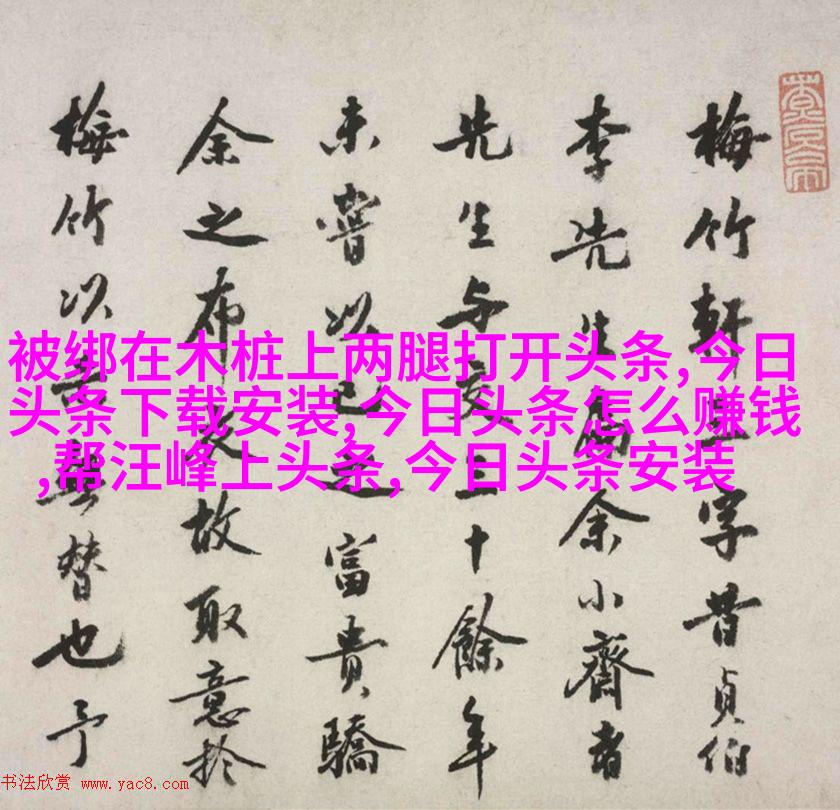 梅竹軒三字昔貞伯
李先生扁余小齋者
先生與交三十餘年
未嘗以己之富貴驕
余之布衣故取意於
梅竹以
替也予
被绑在木桩上两腿打开头条,今日
头条下载安装,今日头条怎么赚钱
,帮汪峰上头条,今日头条安装
书法欣赏 www.yac8.com